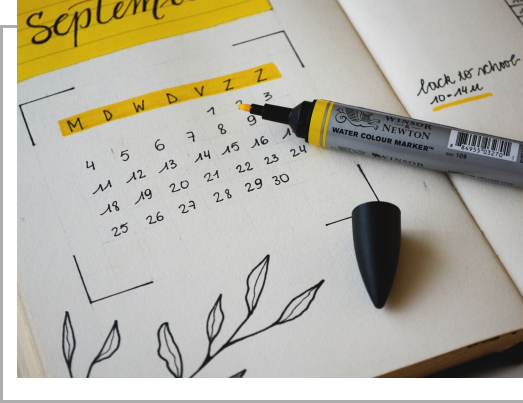 Septem
M D W D V Z Z
1 2 3
4 5 6 7 8 9
11 12 13 14 15 16
18 19 20 21 22 23 24
25 26 27 28 29 30
back to school
10-14u
WINSOR
NEWTON
WATER COLOUR MARKER™
WINSOR